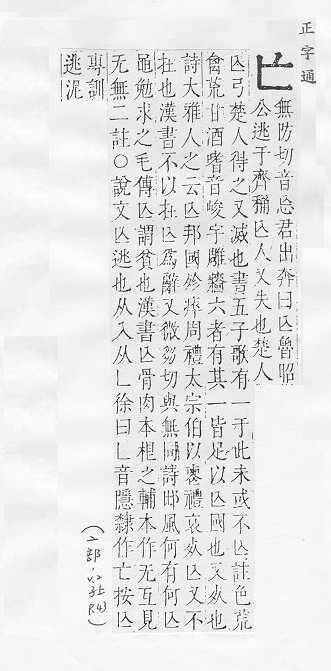 正字通
亾
無防切音忘君出奔曰亾魯昭
公逃于齊稱亾人又失也楚人
亾弓楚人得之又滅也書五子歌有一于此未或不亾註色荒
禽荒甘酒嗜音峻宇雕牆六者有其一皆足以亾國也又死也
詩大雅人之云亾邦國殄瘁周禮太宗伯以喪禮哀死亾又不
在也漢書不以在亾爲辭又微夫切與無同詩邶風何有何亾
黽勉求之毛傳亾謂貧也漢書亾骨肉本根之輔本作无互見
无無二註○說文亾逃也从入从乚徐曰乚音隱隸作亡按亾
專訓
逃泥
P.43)